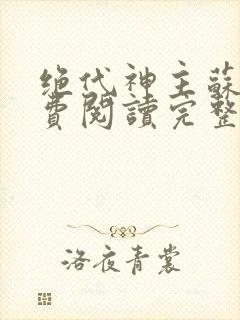 绝代神主蘇
費閱讀完整
洛夜青裳